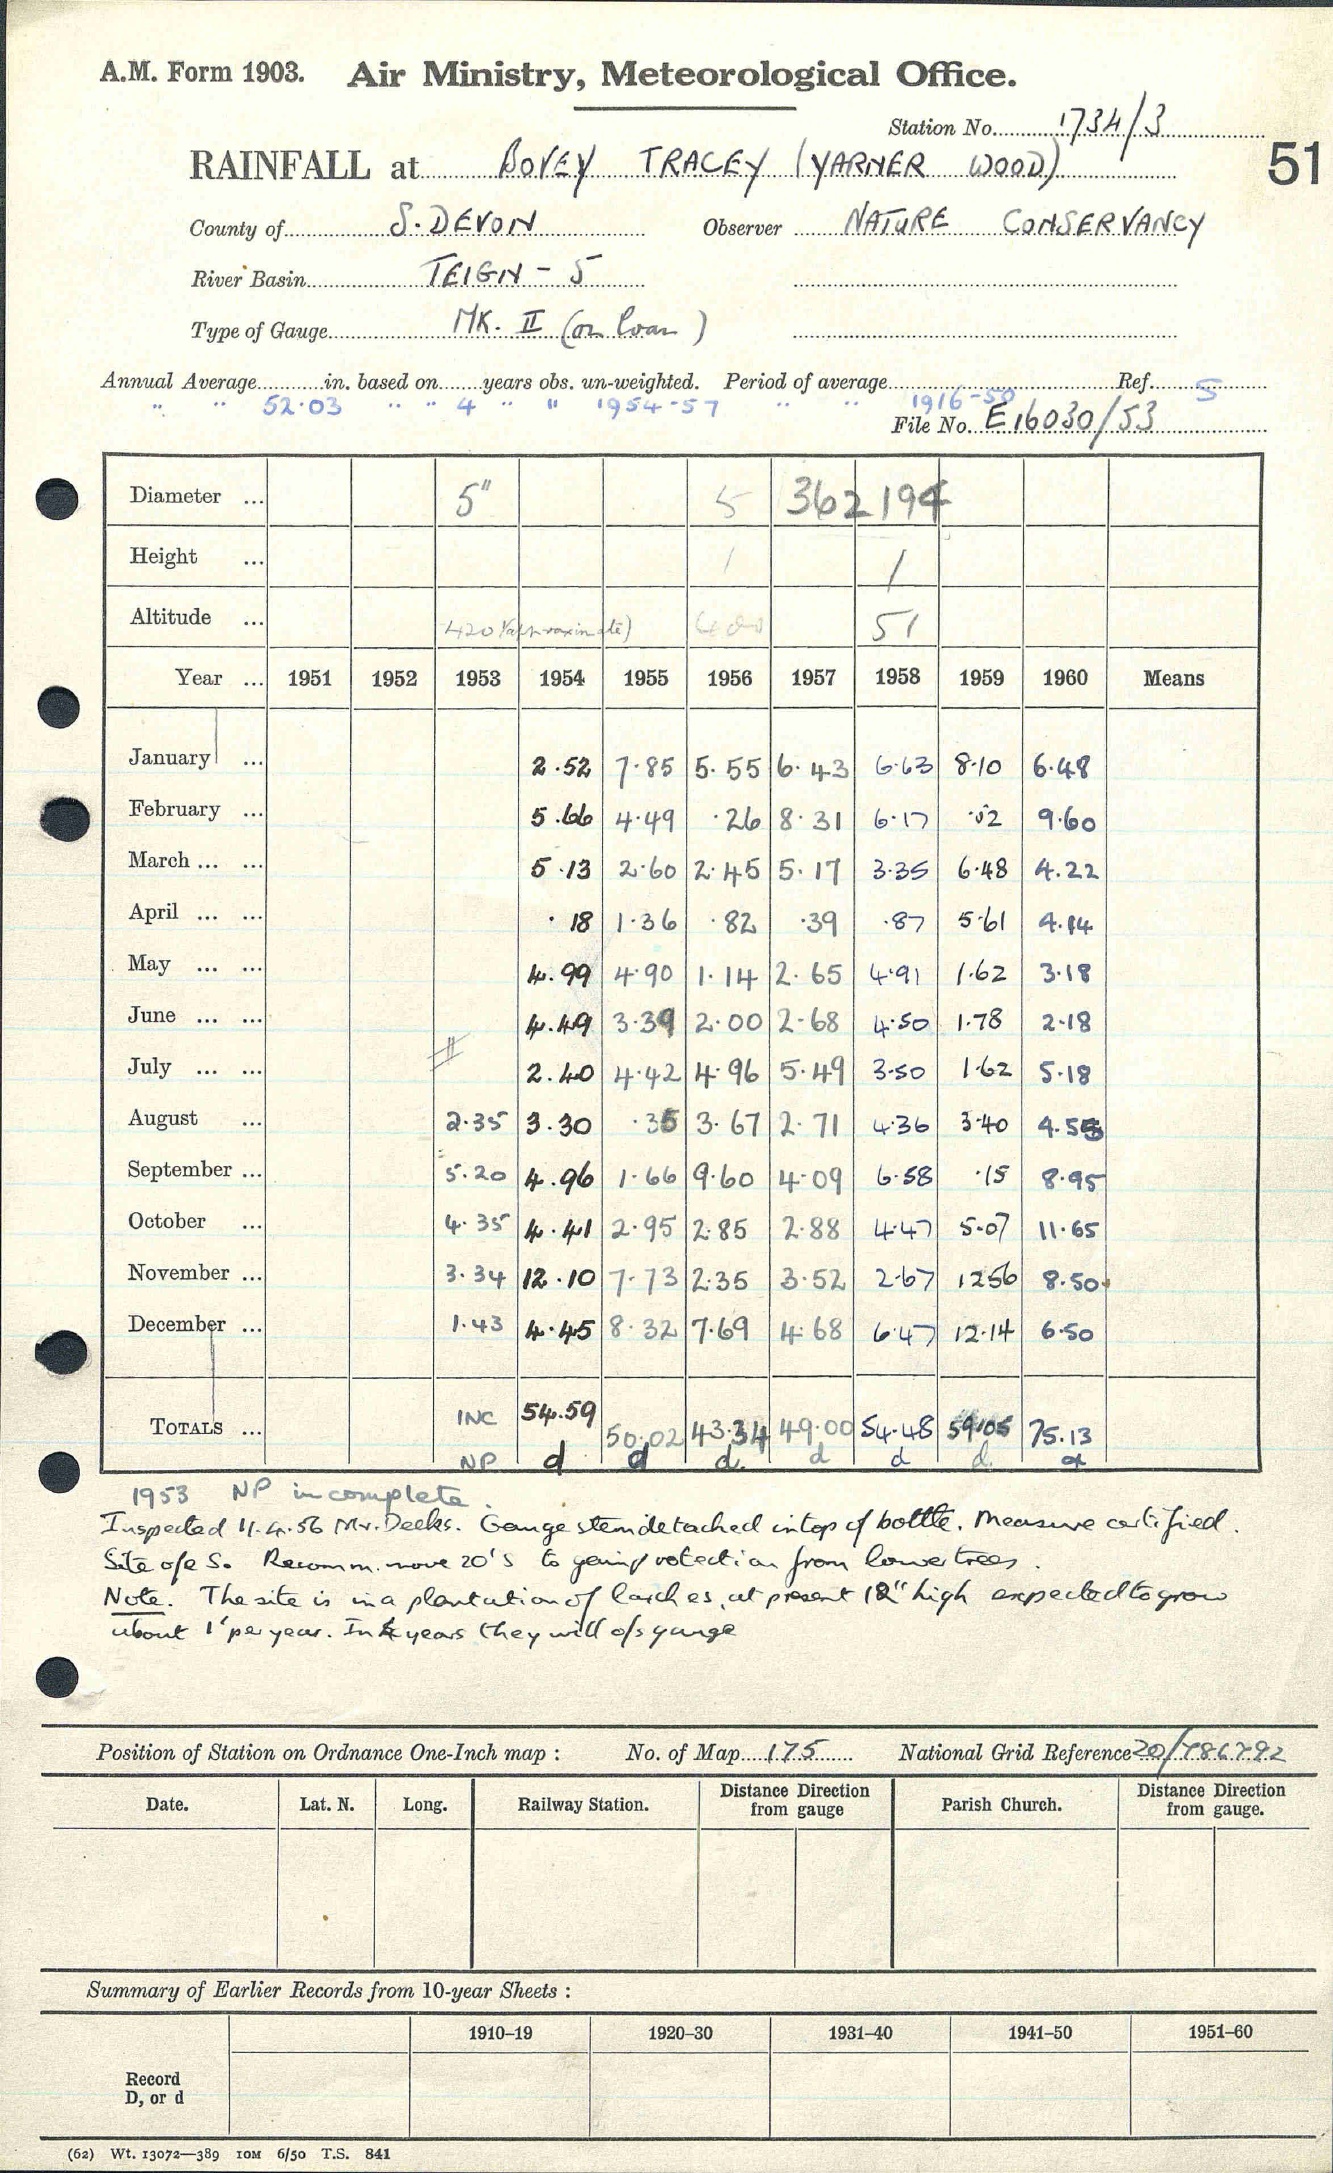 A.M. Form 1903. Air Ministry, Meteorological Office.
Station No. 1734/3
RAINFALL at BOVEY TRACEY (YARNER WOOD)
51
County of S. DEVON Observer NATURE CONSERVANCY
River Basin TEIGN - 5
Type of Gauge MK. II (on loan)
Annual Average in. based on years obs. un-weighted. Period of average Ref. 5
" " 52.03 " " 4 " " 1954-57 " " 1916-50
File No. E16030/53
Diameter ... 5" 5 362194
Height ... 1 1
Altitude ... 420 (approximate) 51
Year ... 1951 1952 1953 1954 1955 1956 1957 1958 1959 1960 Means
January ... 2.52 7.85 5.55 6.43 6.63 8.10 6.48
February ... 5.66 4.49 .26 8.31 6.17 .02 9.60
March ... ... 5.13 2.60 2.45 5.17 3.35 6.48 4.22
April ... ... .18 1.36 .82 .39 .87 5.61 4.14
May ... ... 4.99 4.90 1.14 2.65 4.91 1.62 3.18
June ... ... 4.49 3.39 2.00 2.68 4.50 1.78 2.18
July ... ... 2.40 4.42 4.96 5.49 3.50 1.62 5.18
August ... 2.35 3.30 .35 3.67 2.71 4.36 3.40 4.55
September ... 5.20 4.96 1.66 9.60 4.09 6.58 .15 8.95
October ... 4.35 4.41 2.95 2.85 2.88 4.47 5.07 11.65
November ... 3.34 12.10 7.73 2.35 3.52 2.67 1256 8.50
December ... 1.43 4.45 8.32 7.69 4.68 6.47 12.14 6.50
TOTALS ... INC 54.59 50.02 43.34 49.00 54.48 75.13
NP d d d. d d d d
1953 NP incomplete.
Inspected 11.4.56 Mr. Deeks. Gauge stem detached in top of bottle. Measure certified.
Site o/e S. Recomm. move 20's to gain protection from lower trees.
Note. The site is in a plantation of larches, at present 12" high expected to grow
about 1' per year. In years they will o/s gauge
Position of Station on Ordnance One-Inch map : No. of Map 175 National Grid Reference 20/786792
Date. Lat. N. Long. Railway Station. Distance Direction from gauge Parish Church. Distance Direction from gauge.
Summary of Earlier Records from 10-year Sheets :
1910–19 1920–30 1931–40 1941–50 1951–60
Record
D, or d
(62) Wt. 13072—389 10M 6/50 T.S. 841